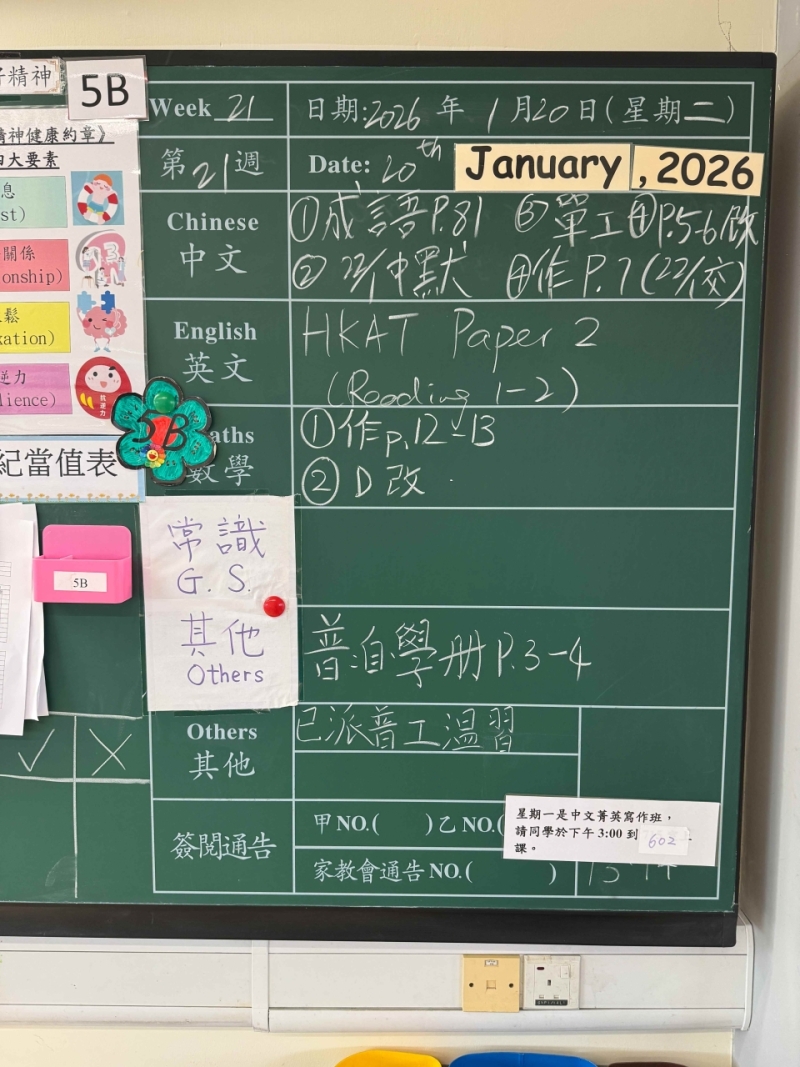 精神
5B
Week 21
日期:2026年 1月20日(星期二)
神健康約章》
大要素
第21週
Date: 20th January, 2026
息
st)
關係
onship)
鬆
xation)
逆力
lience)
Chinese
中文
①成語P.81 ③單工四P.5-6改
② 22/1中默 ④作P.7(22/1交)
English
英文
HKAT Paper 2
(Reading 1-2)
5B
aths
數學
①作p.12-13
② D改
紀當值表
5B
常識
G.S.
其他
Others
普自學冊P.3-4
Others
其他
已派普工溫習
簽閱通告
甲NO.( )乙NO.(
家教會通告NO.( )
星期一是中文菁英寫作班，
請同學於下午3:00到602上
課。